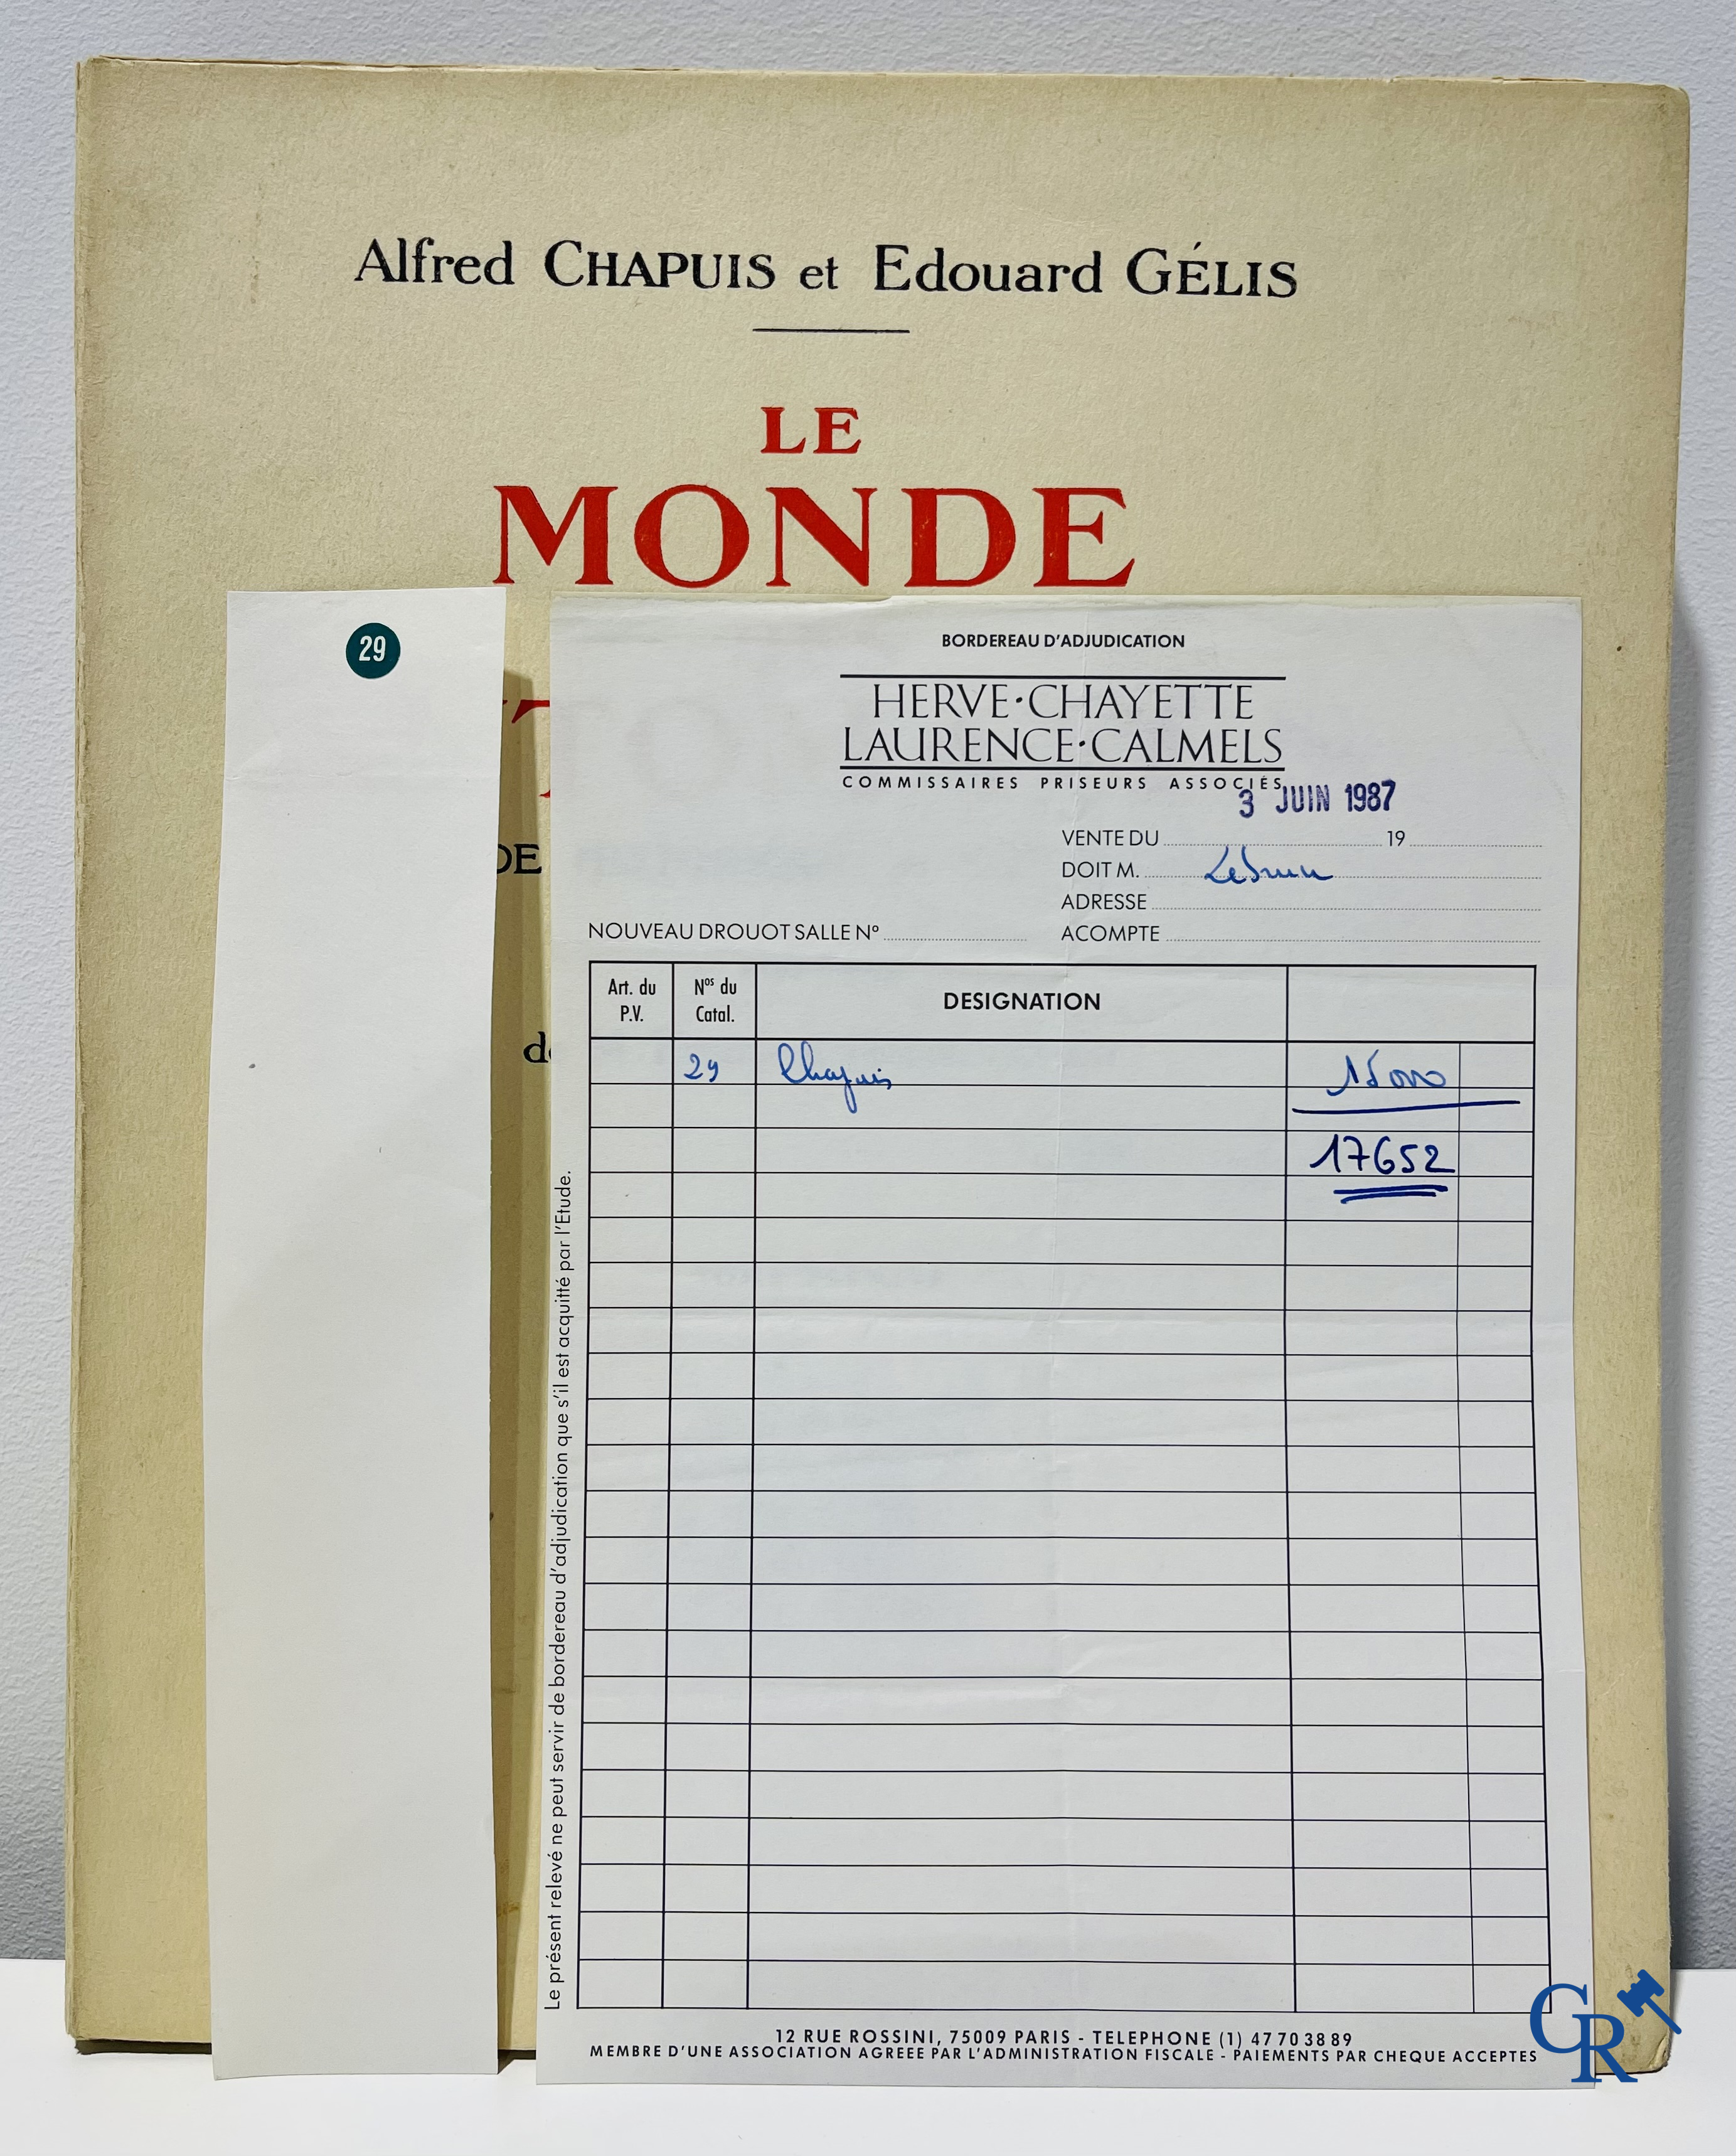 Alfred CHAPUIS et Edouard GÉLIS
LE
MONDE
DE
de
29
BORDEREAU D'ADJUDICATION
HERVE·CHAYETTE
LAURENCE·CALMELS
COMMISSAIRES PRISEURS ASSOCIÉS
3 JUIN 1987
VENTE DU 19
DOIT M. Lebrun
ADRESSE
NOUVEAU DROUOT SALLE Nº ACOMPTE
Art. du P.V. Nos du Catal. DESIGNATION
29 Chapuis 15000
17652
Le présent relevé ne peut servir de bordereau d'adjudication que s'il est acquitté par l'Etude.
12 RUE ROSSINI, 75009 PARIS - TELEPHONE (1) 47 70 38 89
MEMBRE D'UNE ASSOCIATION AGREEE PAR L'ADMINISTRATION FISCALE - PAIEMENTS PAR CHEQUE ACCEPTES
CR